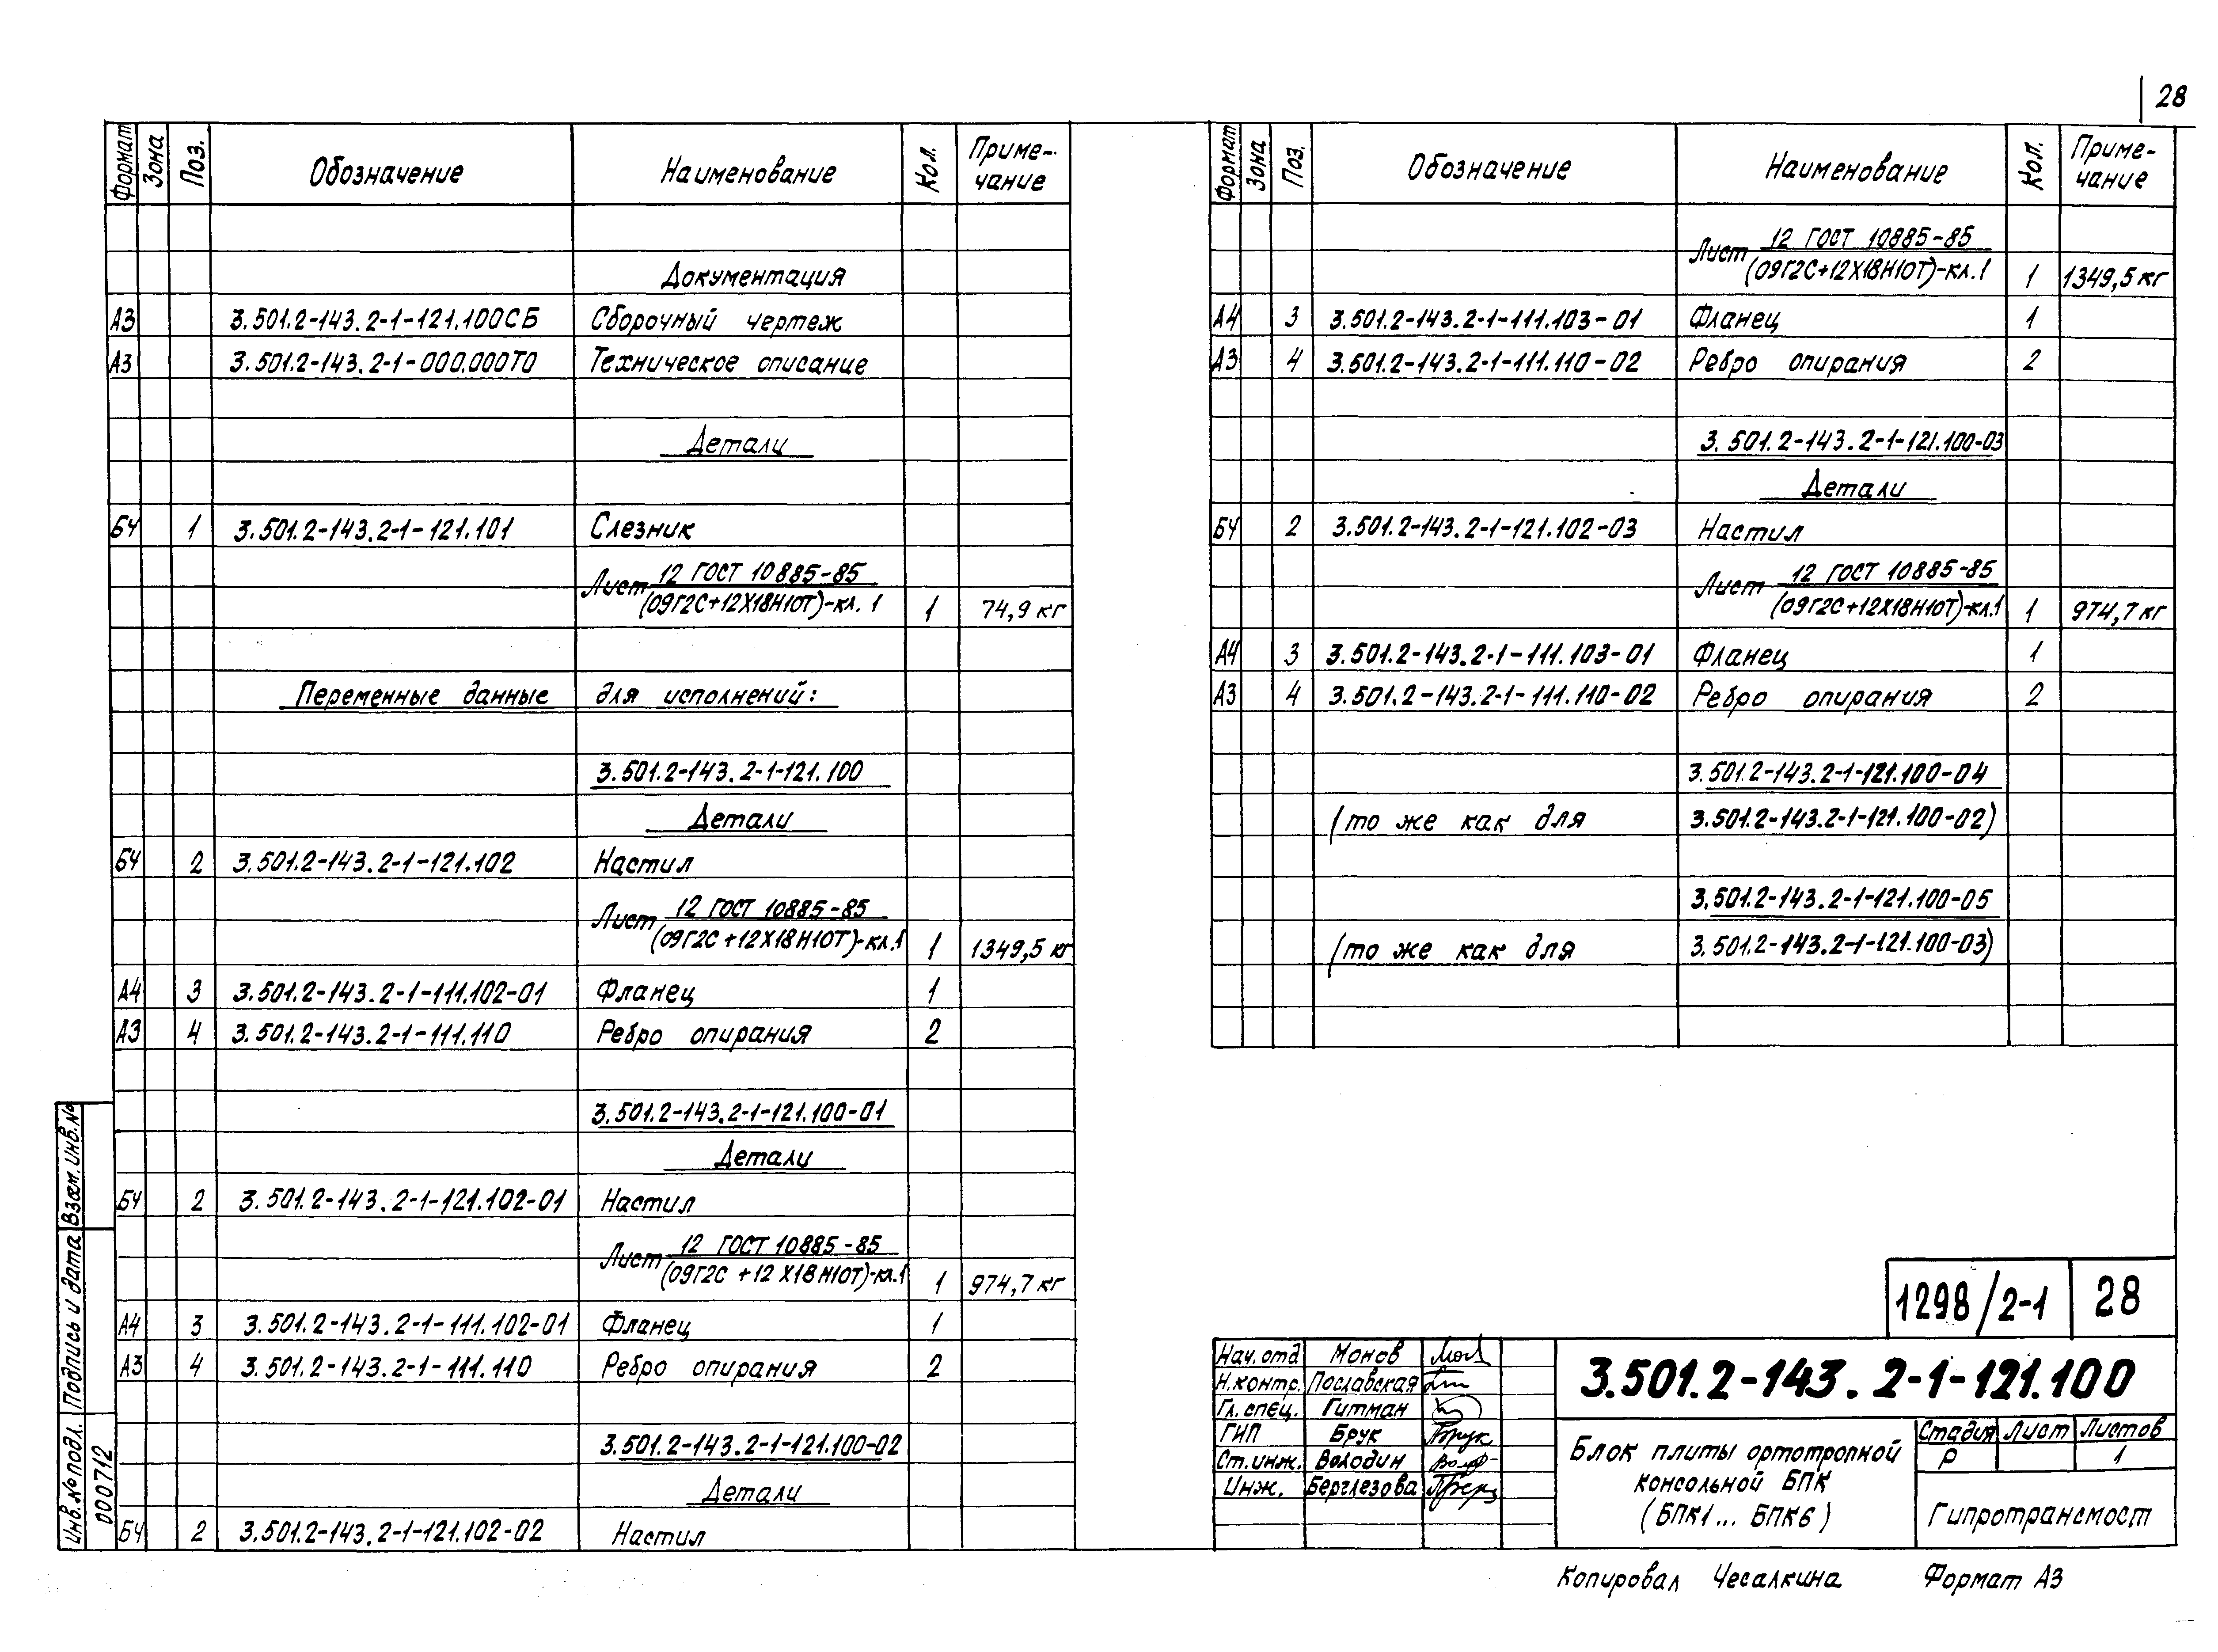 28
Формат Зона Поз. Обозначение Наименование Кол. Приме-чание
Документация
А3 3.501.2-143.2-1-121.100СБ Сборочный чертеж
А3 3.501.2-143.2-1-000.000ТО Техническое описание
Детали
БЧ 1 3.501.2-143.2-1-121.101 Слезник
Лист 12 ГОСТ 10885-85
(09Г2С+12Х18Н10Т)-кл. 1 1 74,9 кг
Переменные данные для исполнений:
3.501.2-143.2-1-121.100
Детали
БЧ 2 3.501.2-143.2-1-121.102 Настил
Лист 12 ГОСТ 10885-85
(09Г2С+12Х18Н10Т)-кл.1 1 1349,5 кг
А4 3 3.501.2-143.2-1-111.102-01 Фланец 1
А3 4 3.501.2-143.2-1-111.110 Ребро опирания 2
3.501.2-143.2-1-121.100-01
Детали
БЧ 2 3.501.2-143.2-1-121.102-01 Настил
Лист 12 ГОСТ 10885-85
(09Г2С+12Х18Н10Т)-кл.1 1 974,7 кг
А4 3 3.501.2-143.2-1-111.102-01 Фланец 1
А3 4 3.501.2-143.2-1-111.110 Ребро опирания 2
3.501.2-143.2-1-121.100-02
Детали
БЧ 2 3.501.2-143.2-1-121.102-02 Настил
Взам. инв. №
Подпись и дата
Инв. № подл.
000712
Формат Зона Поз. Обозначение Наименование Кол. Приме-чание
Лист 12 ГОСТ 10885-85
(09Г2С+12Х18Н10Т)-кл.1 1 1349,5 кг
А4 3 3.501.2-143.2-1-111.103-01 Фланец 1
А3 4 3.501.2-143.2-1-111.110-02 Ребро опирания 2
3.501.2-143.2-1-121.100-03
Детали
БЧ 2 3.501.2-143.2-1-121.102-03 Настил
Лист 12 ГОСТ 10885-85
(09Г2С+12Х18Н10Т)-кл.1 1 974,7 кг
А4 3 3.501.2-143.2-1-111.103-01 Фланец 1
А3 4 3.501.2-143.2-1-111.110-02 Ребро опирания 2
3.501.2-143.2-1-121.100-04
(то же как для 3.501.2-143.2-1-121.100-02)
3.501.2-143.2-1-121.100-05
(то же как для 3.501.2-143.2-1-121.100-03)
1298/2-1 28
Нач. отд Монов
Н.контр. Пославская
Гл. спец. Гитман
ГИП Брук
Ст. инж. Володин
Инж. Берглезова
3.501.2-143.2-1-121.100
Блок плиты ортотропной
консольной БПК
(БПК1... БПК6)
Стадия Лист Листов
Р 1
Гипротрансмост
Копировал Чесалкина Формат А3